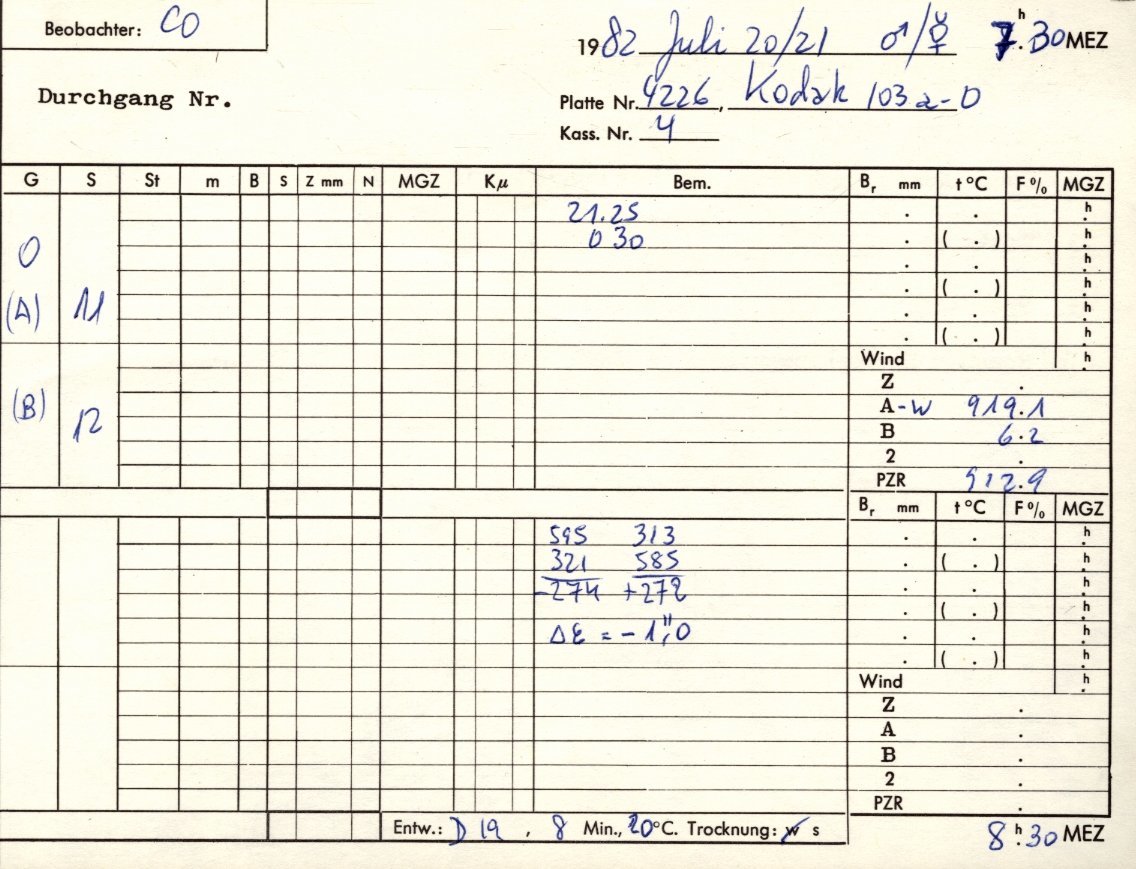 Beobachter: CO
1982 Juli 20/21 ♂/☿ 7.ʰ30 MEZ
Durchgang Nr.
Platte Nr. 4226, Kodak 103 a-O
Kass. Nr. 4
G S St m B S Z mm N MGZ Kμ Bem. Bᵣ mm t°C F% MGZ
21.25 . . .ʰ
0 30 . ( . ) .ʰ
0 . . .ʰ
(A) 11 . ( . ) .ʰ
. . .ʰ
. ( . ) .ʰ
Wind .ʰ
Z .
(B) 12 A-W 919.1
B 6.2
2 .
PZR 912.9
Bᵣ mm t°C F% MGZ
595 313 . . .ʰ
321 585 . ( . ) .ʰ
-274 +272 . . .ʰ
. ( . ) .ʰ
Δε = -1",0 . . .ʰ
. ( . ) .ʰ
Wind .ʰ
Z .
A .
B .
2 .
PZR .
Entw.: D 19, 8 Min., 20°C. Trocknung: w s
8.ʰ30 MEZ